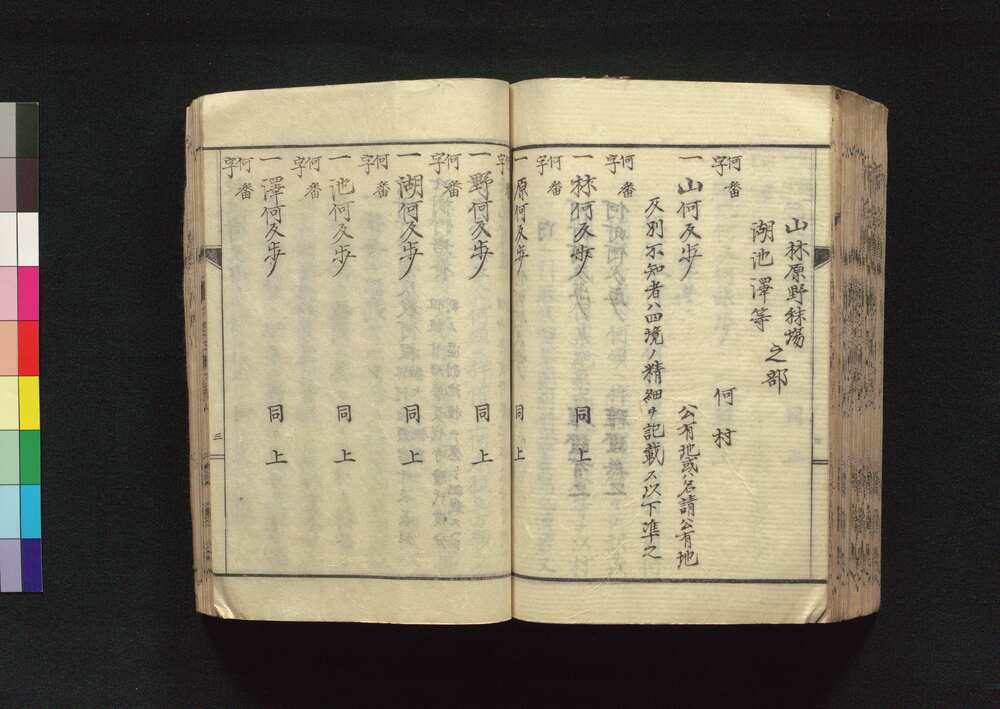 山林原野秣場
湖池澤等
之部
何村
何番
字
一山何反歩 公有地或ハ名請公有地
反別不知者ハ四境ノ精細ヲ記載ス以下準之
何番
字
一林何反歩 同上
何番
字
一原何反歩 同上
何番
字
一野何反歩 同上
何番
字
一湖何反歩 同上
何番
字
一池何反歩 同上
何番
字
一澤何反歩 同上
何番
字
三